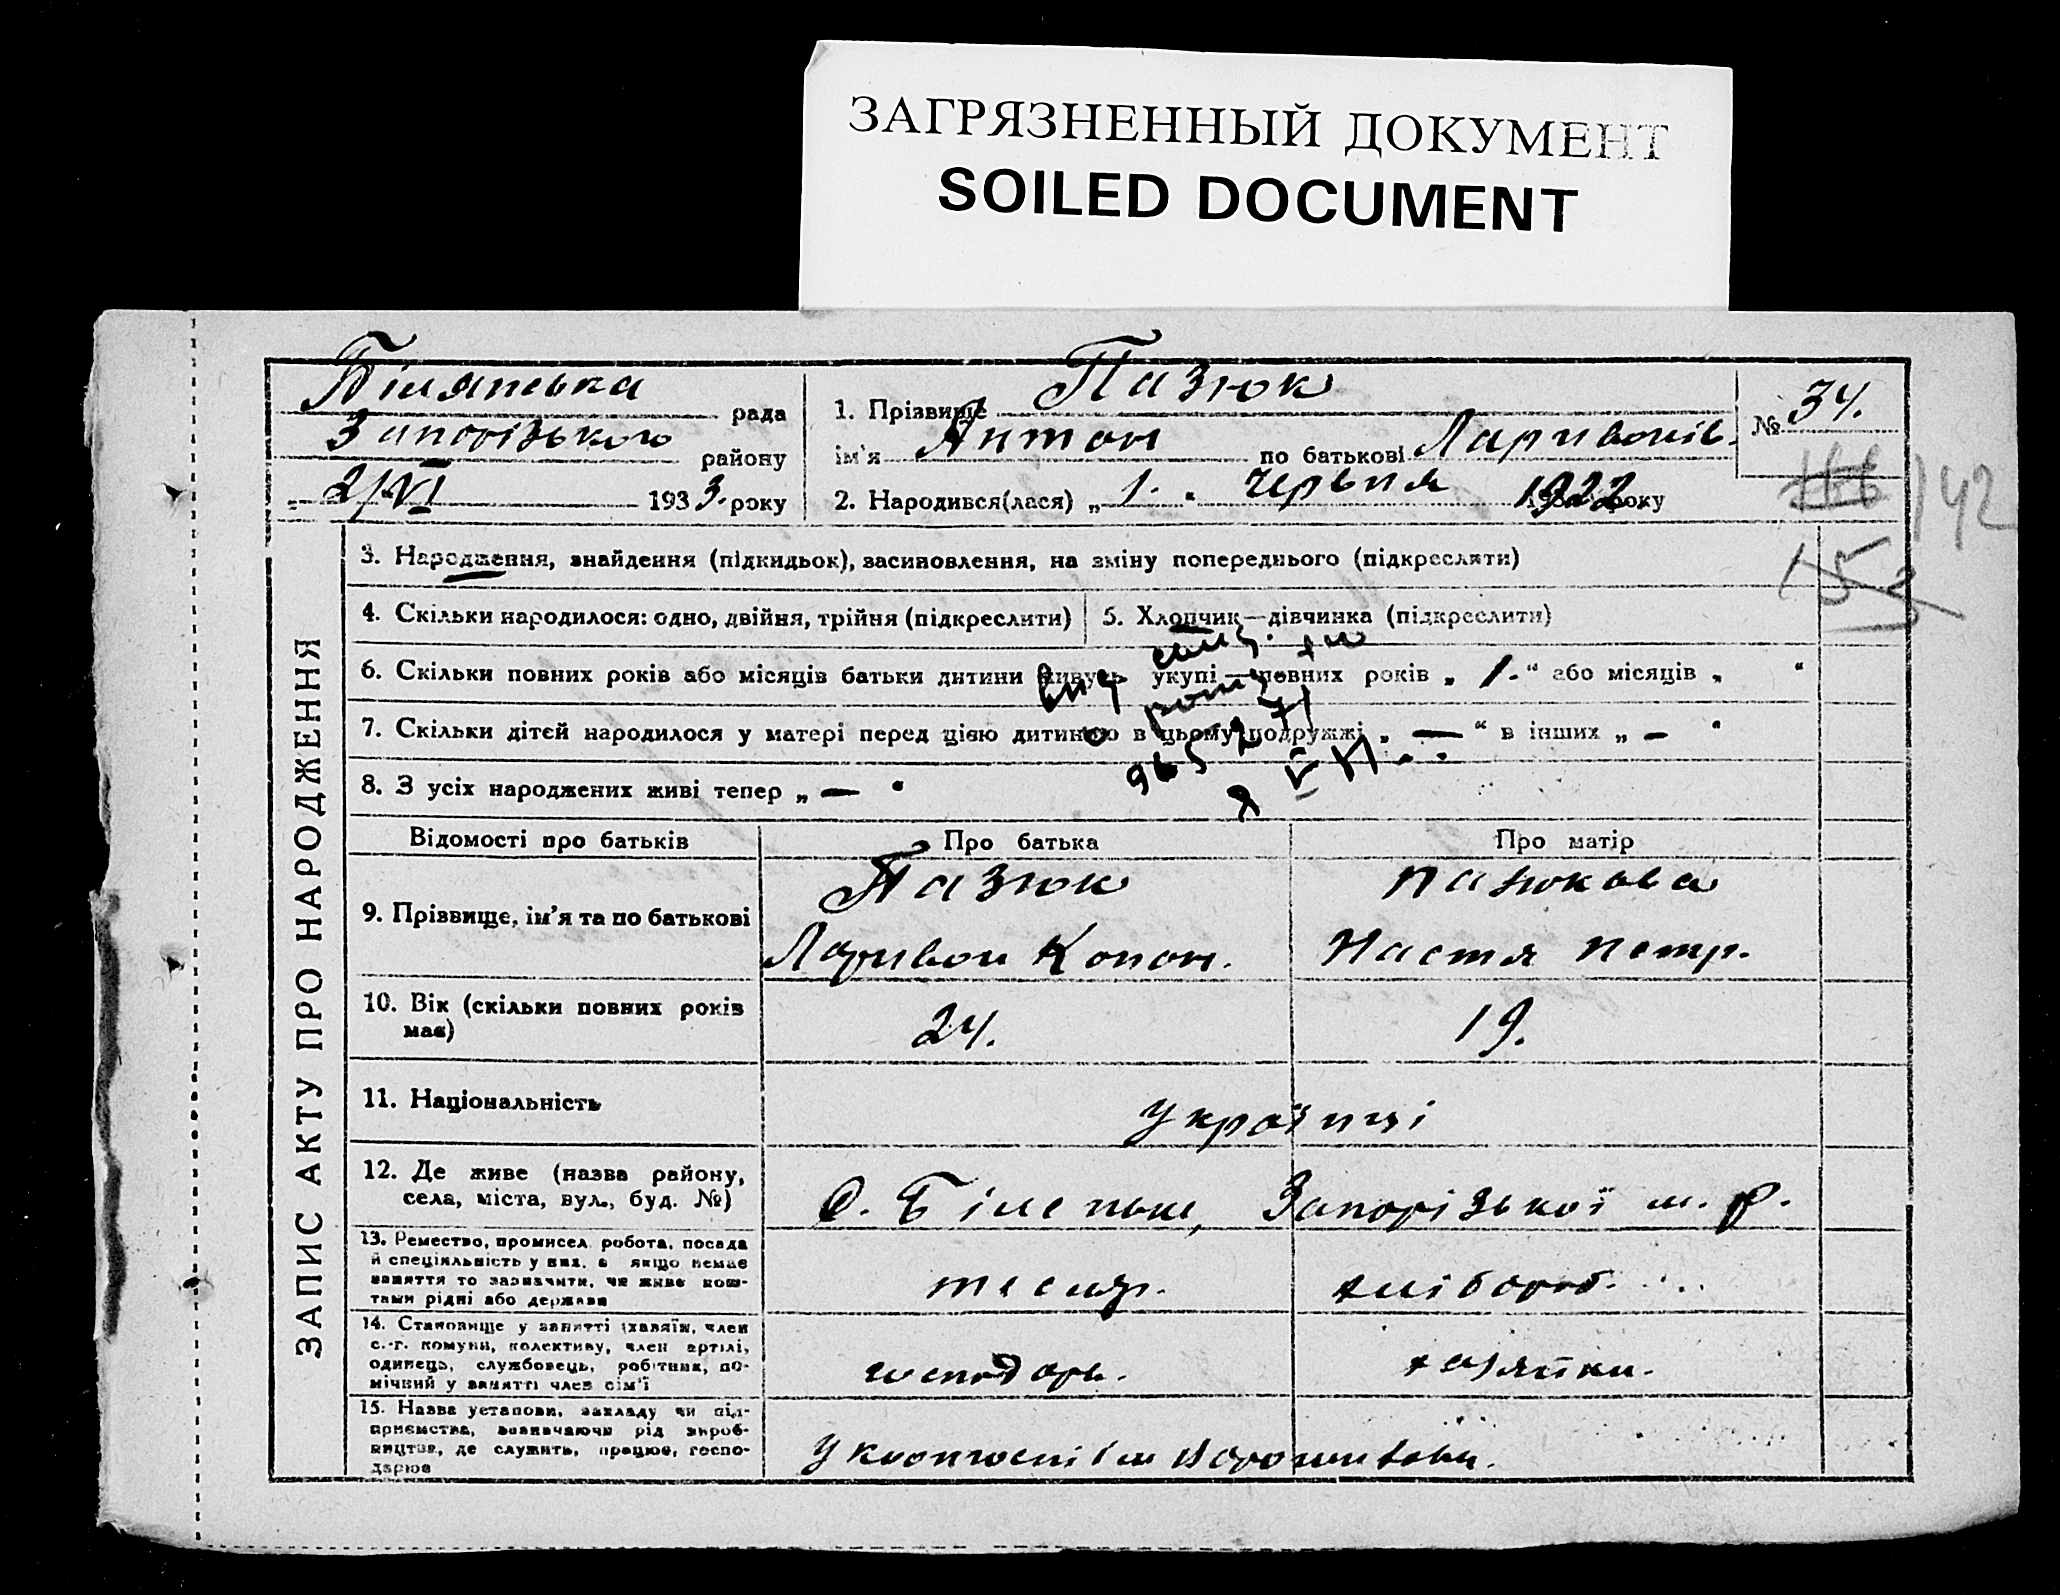 ЗАГРЯЗНЕННЫЙ ДОКУМЕНТ
SOILED DOCUMENT
рада
Запорізького району
2/VI 1933. року
1. Прізвище Пазюк
ім'я Антон по батькові Ларивонів.
2. Народився(лася) „ 1. " Червня 1922 року
№ 34.
166
142
153
ЗАПИС АКТУ ПРО НАРОДЖЕННЯ
3. Народження, знайдення (підкидьок), засиновлення, на зміну попереднього (підкреслити)
4. Скільки народилося: одно, двійня, трійня (підкреслити)
5. Хлопчик—дівчинка (підкреслити)
6. Скільки повних років або місяців батьки дитини живуть укупі — повних років „ 1. " або місяців „ "
7. Скільки дітей народилося у матері перед цією дитиною в цьому подружжі „ — " в інших „ — "
8. З усіх народжених живі тепер „ — "
Відомості про батьків
Про батька
Про матір
9. Прізвище, ім'я та по батькові
Пазюк
Ларивон Конон.
Пазюкова
Настя Петр.
10. Вік (скільки повних років
має)
24.
19.
11. Національність
Українці
12. Де живе (назва району,
села, міста, вул., буд. №)
Запорізької м. р.
13. Ремество, промисел, робота, посада
й спеціяльність у них, а якщо немає
заняття то зазначити, чи живе кош-
тами рідні або держави
тесляр.
хлібороб.
14. Становище у занятті (хазяїн, член
с.-г. комуни, колективу, член артілі,
одинець, службовець, робітник, по-
мічний у занятті член сім'ї
господарь.
хазяйка.
15. Назва установи, закладу чи під-
приємства, визначаючи рід вироб-
ництва, де служить, працює, госпо-
дарює